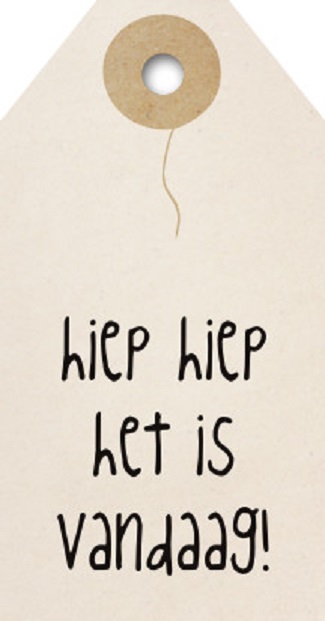 hiep hiep
het is
vandaag!